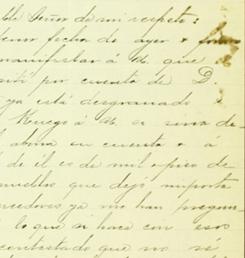 ble Señor de mi respeto:
tenor fecha de ayer e
manifestar á M. que
sitó por cuenta de D.
ya está desgranado
Ruego á M. se sirva de
abona en cuenta e á
de él es de mil e pico de
muebles que dejó importe
cedores ya me han pregun
lo que se hace con esos
contestado que no sé